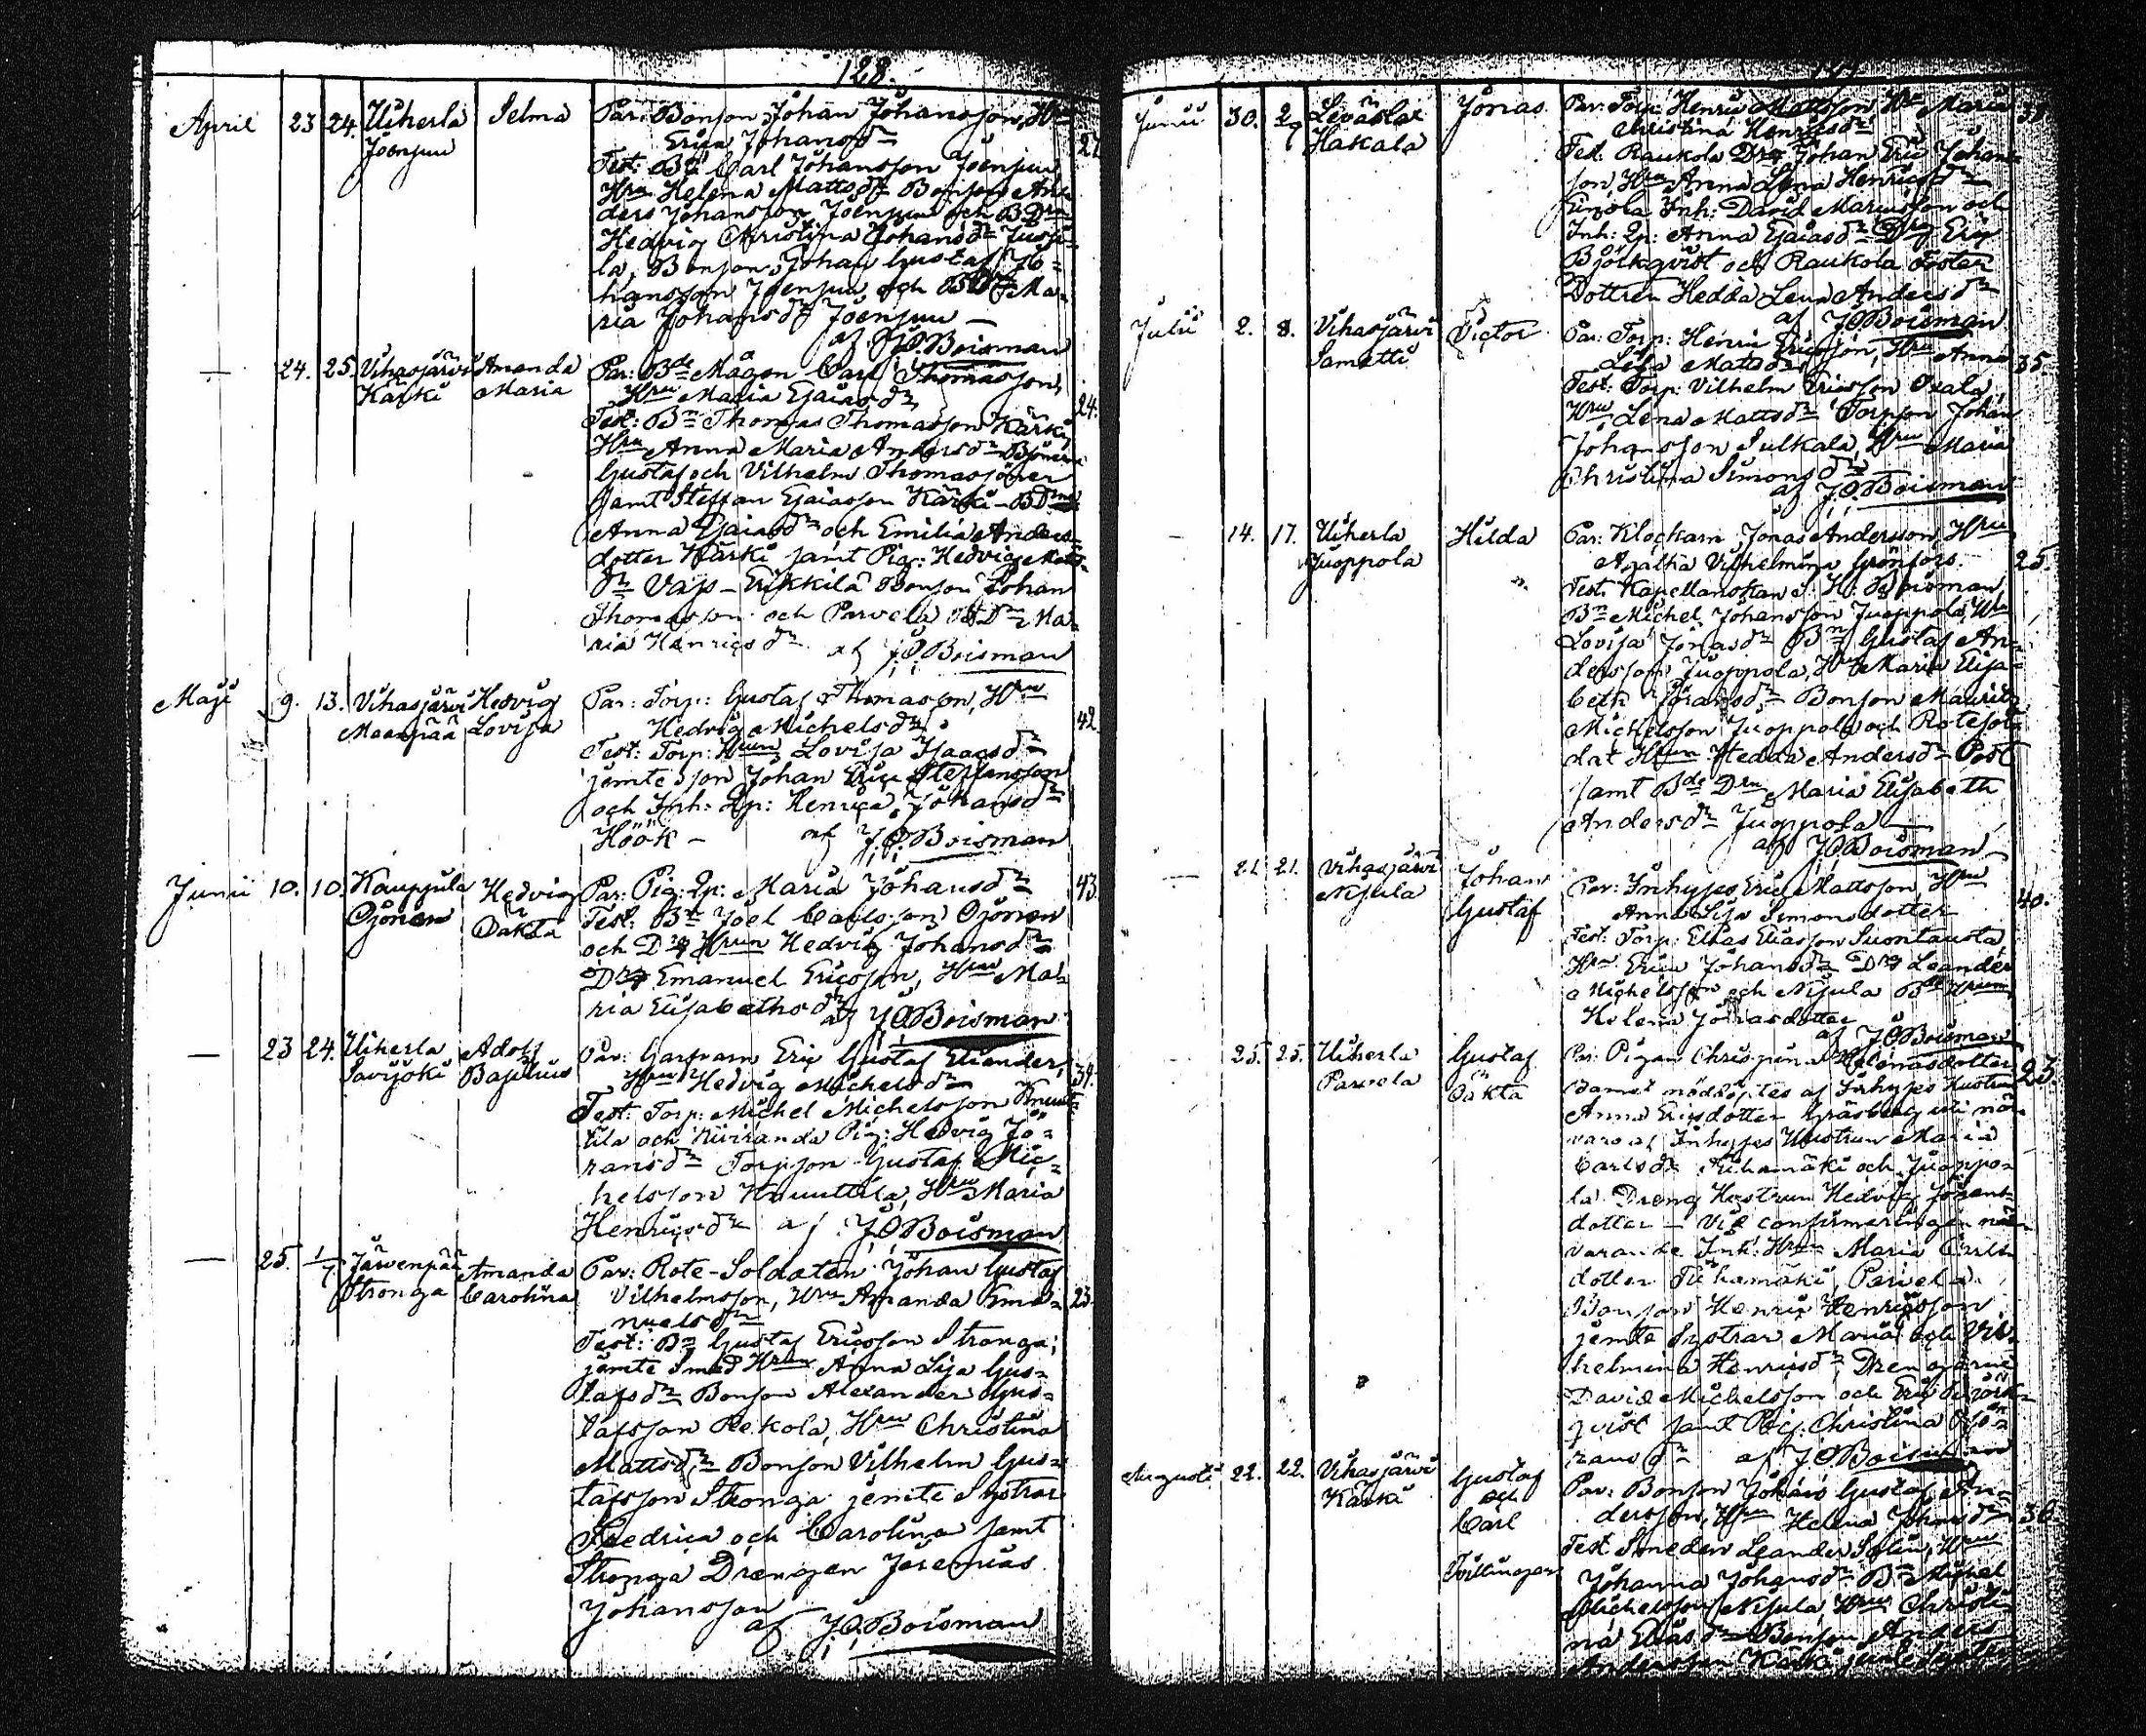 128.
April 23 24. Uiherla Selma Par: Bonson Johan Johansson, Hru
Joenjuu Erica Johansdr 27
Test: Bn Carl Johansson Joenjuu
Hru Helena Mattsdr Bonson An
ders Johansson Joenjuu och B Dru
Hedvig Christina Johansdr Jussi
la, Bonson Johan Gustaf Jo=
hansson Joenjuu och B Dr Ma=
ria Johansdr Joenjuu —
af J.O. Boisman
— 24. 25. Vihasjärvi Amanda Par: Bde Mågen Carl Thomasson,
Kärki Maria Hru Maria Esaiasdr 24.
Test: Bn Thomas Thomasson Kärki,
Hru Anna Maria Andersdr Bönerne
Gustaf och Vilhelm Thomassöner
samt Steffan Esaiasson Kärki — B Drne
Anna Esaiasdr och Emilia Anders=
dotter Kärki samt Pig: Hedvig Matts-
dr Vaps — Erikkilä Bonson Johan
Thomasson och Parvela B Dr Ma=
ria Henricsdr af J.O. Boisman
Maji 9. 13. Vihasjärvi Hedvig Par: Torp: Gustaf Thomasson, Hru
Maanpää Lovisa Hedvig Michelsdr 42
Test: Torp: Hrun Lovisa Isaacsdr
jemte son Johan Eric Steffansson
och Inh: Qp: Henrica Johansdr
Höök — af J.O. Boisman
Junii 10. 10. Kauppila Hedvig Par: Pig: Qp: Maria Johansdr 43.
Ojonen Oäkta Test: Bn Joel Carlsson Ojonen
och Drg Hrun Hedvig Johansdr
Drg Emanuel Ericsson, Hru Ma=
ria Elisabethsdr af J.O. Boisman
— 23 24. Uiherla Adolf Par: Garfvaren Eric Gustaf Eliander,
Savijoki Hru Hedvig Michelsdr 34.
Test: Torp: Michel Michelsson Knuut
tila och Pig: Hedvig Jö=
ransdr Torpson Gustaf Mic=
helsson Knuuttila, Hru Maria
Henricsdr af J.O. Boisman
— 25. 1/7 Järvenpää Amanda Par: Rote-Soldaten Johan Gustaf
Stronga Carolina Vilhelmsson, Hru Amanda Ema= 23.
nuelsdr
Test: Bn Gustaf Ericsson Stronga,
jemte Smed Hrun Anna Lisa Gus=
tafsdr Bonson Alexander Gus=
tafsson Rekola, Hru Christina
Mattsdr Bonson Vilhelm Gus=
tafsson Stronga jemte Systrar
Fredrica och Carolina samt
Stronga Drengen Jeremias
Johansson af J.O. Boisman
Junii 30. 2/7 Leväslax Jonas Par: Torp: Henric Mattsson, Hru Maria
Hakala Christina Henricsdr
Test: Raukola Drg Johan Eric Johans
son, Hru Anna Lena Henricsdr
Inh: David och
Inh: Qp: Anna Esaiasdr Drg Eric
Björkqvist och Raukola Foster
Dottren Hedda Lena Andersdr
af J.O. Boisman
Julii 2. 8. Vihasjärvi Victor Par: Torp: Henric Ericsson, Hru Anna
Samatti Lisa Mattsdr 35.
Test: Torp: Vilhelm Ericsson
Hru Lena Mattsdr Torpson Johan
Johansson Sulkala, Hru Maria
Christina Simonsdr
af J.O. Boisman
— 14. 17. Uiherla Hilda Par: Klockarn Jonas Andersson, Hru
Juoppola Agatha Vilhelmina Grönfors. 25.
Test: Boisman
Bn Michel Johansson Juoppola, Hru
Lovisa Jonasdr Bn Gustaf An=
dersson Juoppola, Hru Maria Elisa=
beth Jöransdr Bonson Maurits
Michelsson Juoppola och Rotesol=
dat Hrun Hedda Andersdr Post
samt Bde Dru Maria Elisabeth
Andersdr Juoppola —
af J.O. Boisman
— 21. 21. Vihasjärvi Johan Par: Inhyses Eric Mattsson, Hru
Nisula Gustaf Anna Lisa Simonsdotter 40.
Test: Torp: Elias Eliasson Suontausta,
Hru Erica Johansdr Drg Leander
Michelsson och Nisula Bde Hrun
Helena Jonasdotter
af J.O. Boisman
— 25. 25. Uiherla Gustaf Par: Pigan Christina 23.
Parvela Oäkta Barnet nöddöptes af Inhyses Hustrun
Anna Ericsdotter Gräsberg uti när
varo af Inhyses Hustrun Maria
Carlsdr och Juoppo=
la Dreng Hustrun Hedvig Jörans-
dotter — Vid confirmeringen när
varande Inh: Hru Maria Carls
dotter Parvela
Bonson Henric Henricsson
jemte Systrar Maria och Vil=
helmina Henricsdr Drengarne
David Michelsson och Eric Björk=
qvist samt Pig: Christina Jö=
ransdr af J.O. Boisman
Augusti 22. 22. Vihasjärvi Gustaf Par: Bonson Johan Gustaf An=
Kärki och dersson, Hru Helena Johansdr 36.
Carl Test: Smeden Leander Salin, Hru
Tvillingar Johanna Johansdr Bn Michel
Michelsson Nisula, Hru Christi
na Eliasdr Bonson Anders
Andersson Kärki